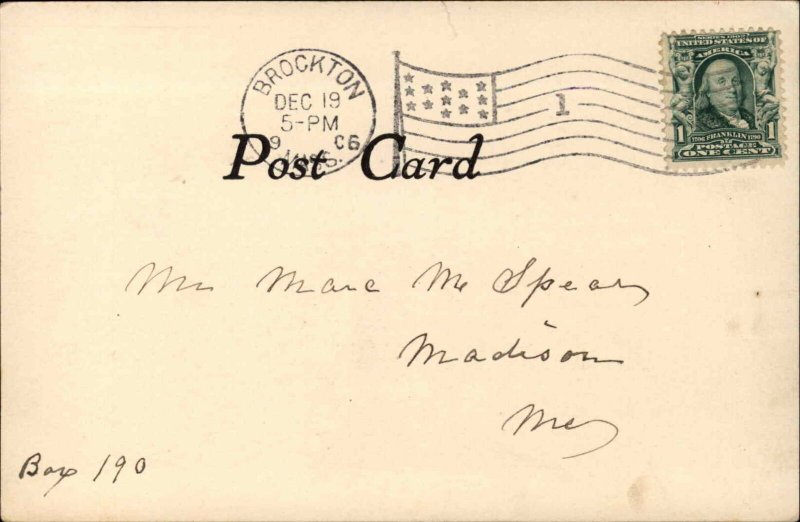 BROCKTON
DEC 19
5-PM
9 06
MASS.
1
SERIES 1902
UNITED STATES OF
AMERICA
1 1706 FRANKLIN 1790 1
POSTAGE
ONE CENT
Post Card
Marc Mc Spear
Madison
Me
Box 190